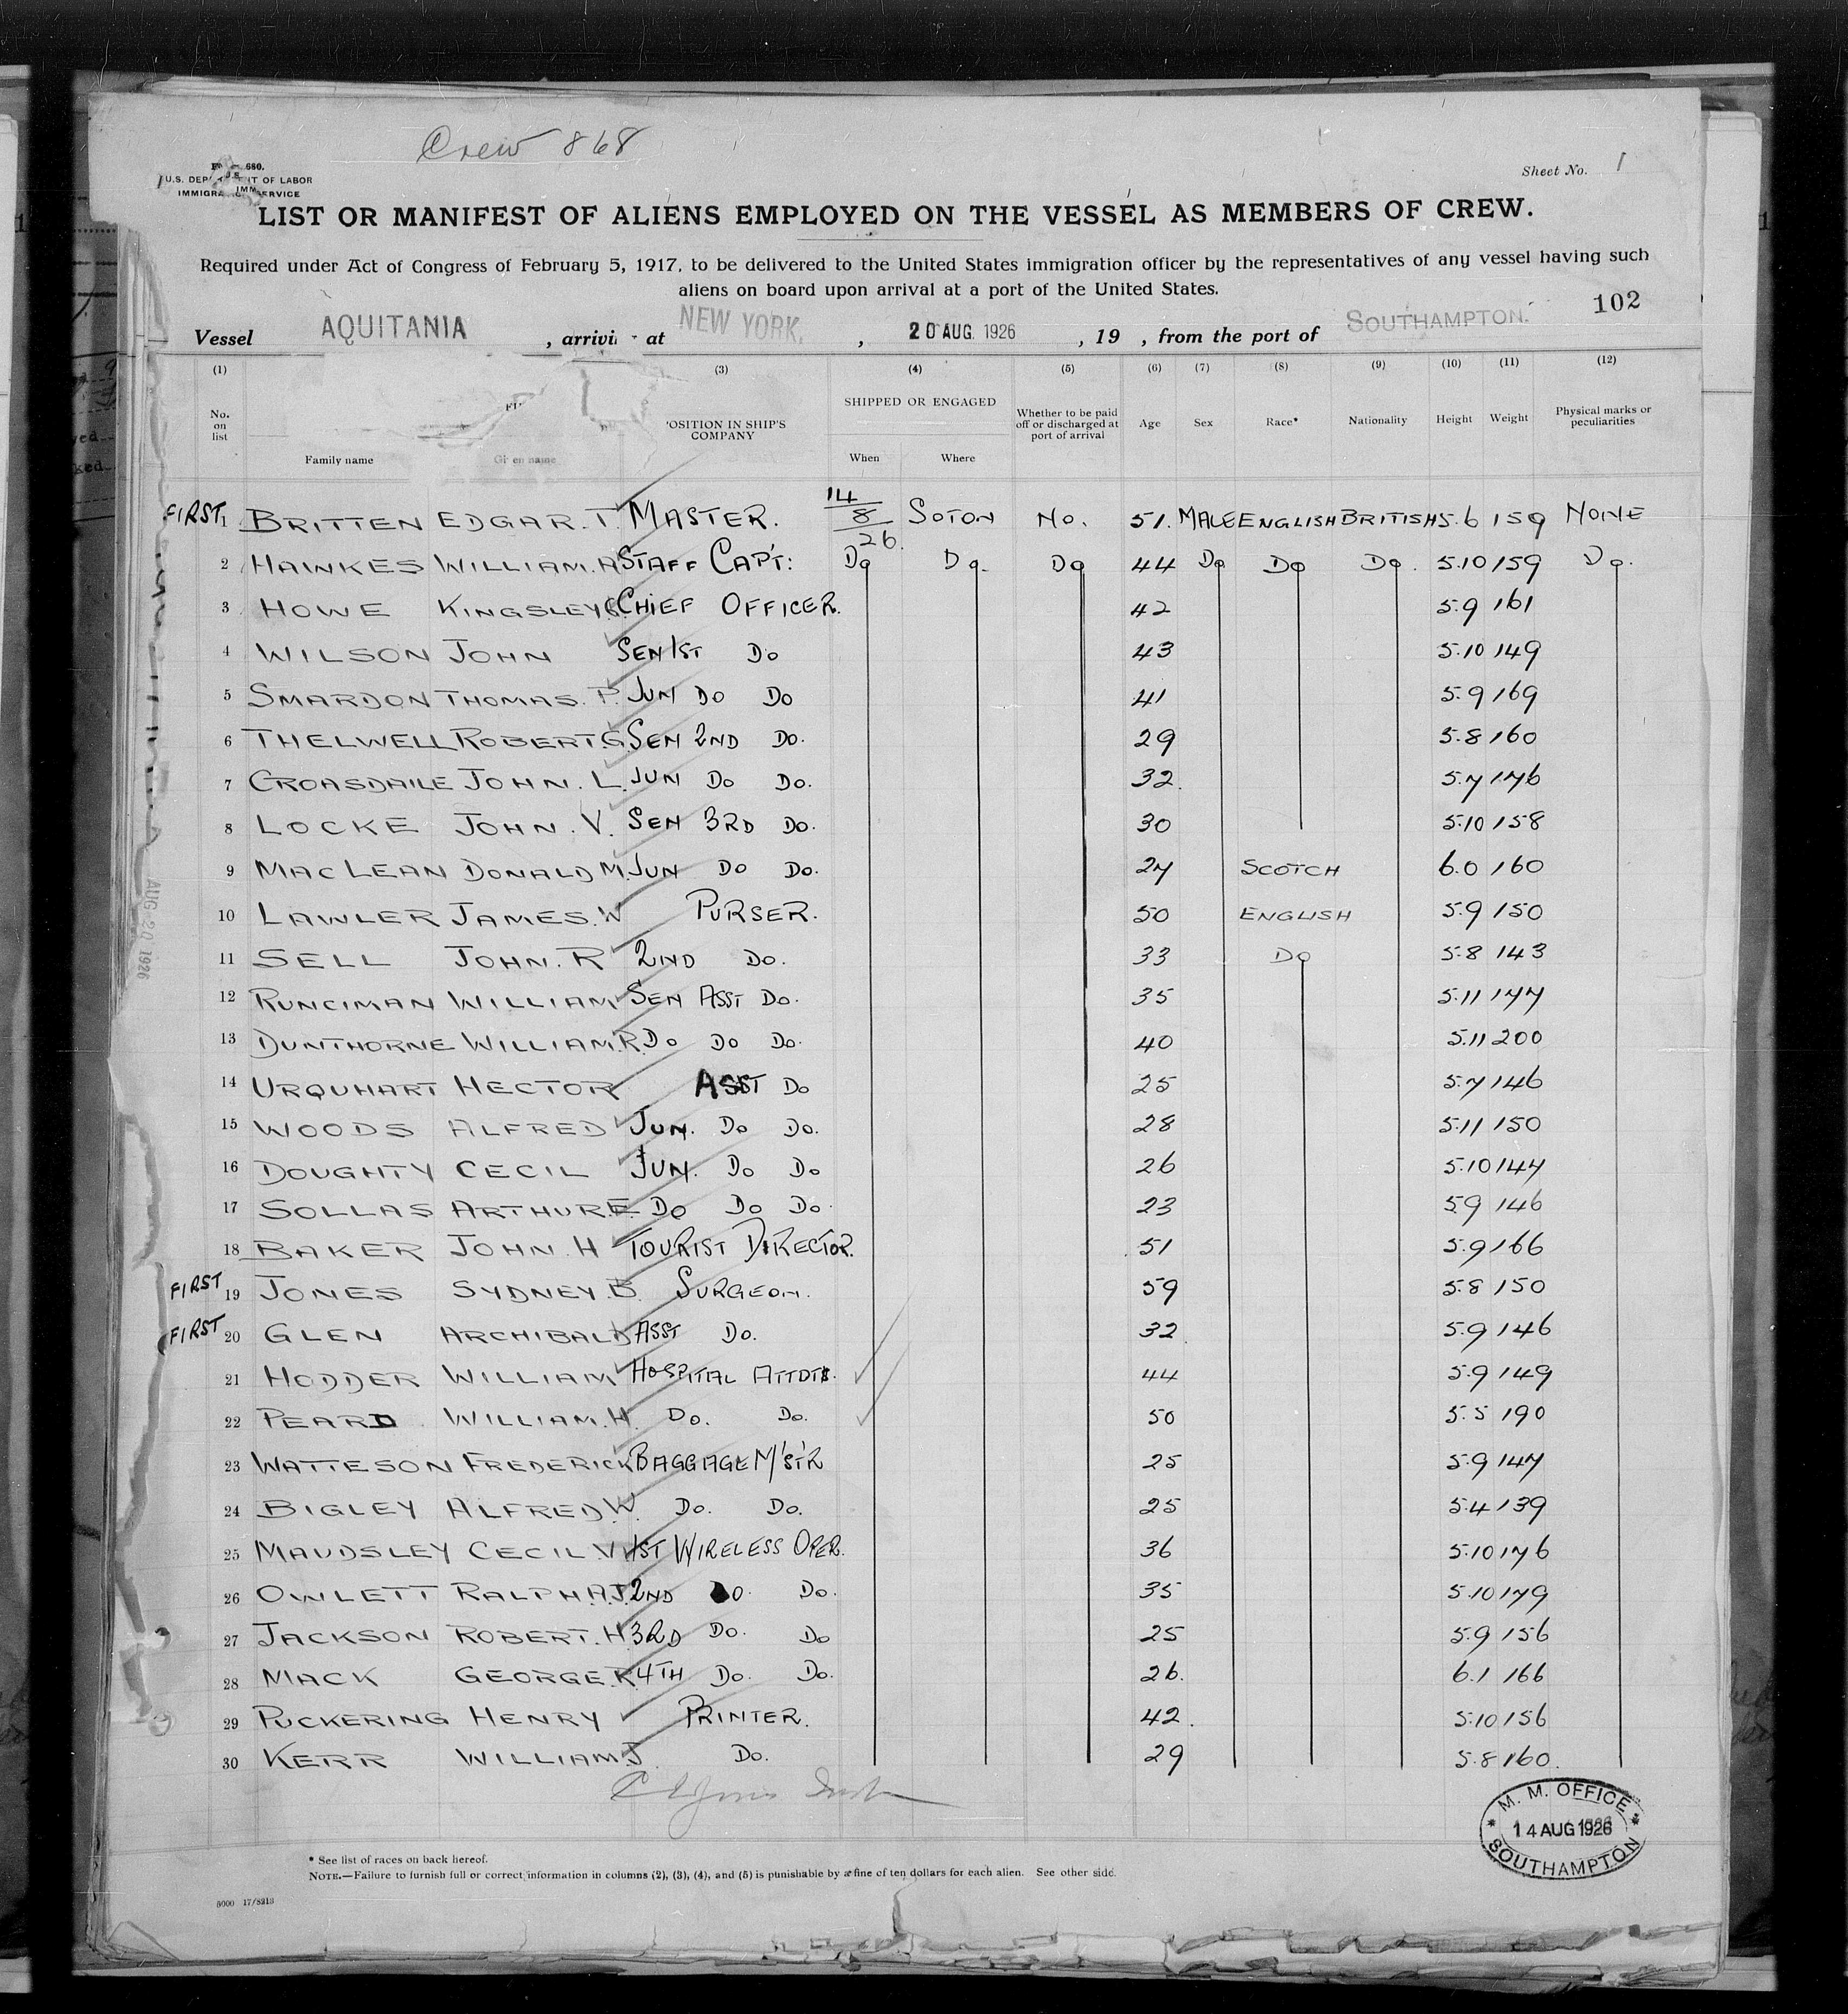 Crew 868
U.S. DEP T OF LABOR
IMMIGRA SERVICE
Sheet No. 1
LIST OR MANIFEST OF ALIENS EMPLOYED ON THE VESSEL AS MEMBERS OF CREW.
Required under Act of Congress of February 5, 1917, to be delivered to the United States immigration officer by the representatives of any vessel having such
aliens on board upon arrival at a port of the United States.
102
Vessel AQUITANIA , arrivi at NEW YORK, , 20 AUG. 1926 , 19 , from the port of SOUTHAMPTON.
(1) (3) (4) (5) (6) (7) (8) (9) (10) (11) (12)
No. on list Family name Given name POSITION IN SHIP'S COMPANY SHIPPED OR ENGAGED When Where Whether to be paid off or discharged at port of arrival Age Sex Race* Nationality Height Weight Physical marks or peculiarities
FIRST 1 BRITTEN EDGAR. T. MASTER. 14/8/26. SOTON NO. 51. MALE ENGLISH BRITISH 5.6 159 NONE
2 HAWKES WILLIAM. A STAFF CAPT: DO DO. DO 44 DO DO DO. 5.10 159 DO.
3 HOWE KINGSLEY CHIEF OFFICER. 42 5.9 161
4 WILSON JOHN SEN 1ST DO 43 5.10 149
5 SMARDON THOMAS. P. JUN DO DO 41 5.9 169
6 THELWELL ROBERT. G. SEN 2ND DO. 29 5.8 160
7 CROASDAILE JOHN. L. JUN DO DO. 32. 5.7 176
8 LOCKE JOHN. V. SEN 3RD DO. 30 5.10 158
9 MACLEAN DONALD M. JUN DO DO. 27 SCOTCH 6.0 160
10 LAWLER JAMES. W PURSER. 50 ENGLISH 5.9 150
11 SELL JOHN. R 2ND DO. 33 DO 5.8 143
12 RUNCIMAN WILLIAM SEN ASST DO. 35 5.11 177
13 DUNTHORNE WILLIAM. R. DO DO DO. 40 5.11 200
14 URQUHART HECTOR ASST DO 25 5.7 146
15 WOODS ALFRED JUN. DO DO. 28 5.11 150
16 DOUGHTY CECIL JUN. DO DO 26 5.10 147
17 SOLLAS ARTHUR. E. DO DO DO. 23 5.9 146
18 BAKER JOHN. H TOURIST DIRECTOR. 51 5.9 166
FIRST 19 JONES SYDNEY. B. SURGEON. 59 5.8 150
FIRST 20 GLEN ARCHIBALD ASST DO. 32. 5.9 146
21 HODDER WILLIAM HOSPITAL ATTDTS. 44 5.9 149
22 PEARD WILLIAM. H. DO. DO. 50 5.5 190
23 WATTESON FREDERICK BAGGAGE M'ST'R 25 5.9 147
24 BIGLEY ALFRED. W. DO. DO. 25 5.4 139
25 MAUDSLEY CECIL. W 1ST WIRELESS OPER. 36 5.10 176
26 OWLETT RALPH. A.J. 2ND DO. DO. 35 5.10 179
27 JACKSON ROBERT. H. 3RD DO. DO 25 5.9 156
28 MACK GEORGE. R. 4TH DO. DO. 26. 6.1 166
29 PUCKERING HENRY PRINTER. 42. 5.10 156
30 KERR WILLIAM J DO. 29 5.8 160.
AUG 20 1926
M. M. OFFICE
14 AUG 1926
SOUTHAMPTON
* See list of races on back hereof.
NOTE.—Failure to furnish full or correct information in columns (2), (3), (4), and (5) is punishable by a fine of ten dollars for each alien. See other side.
5000 17/8213